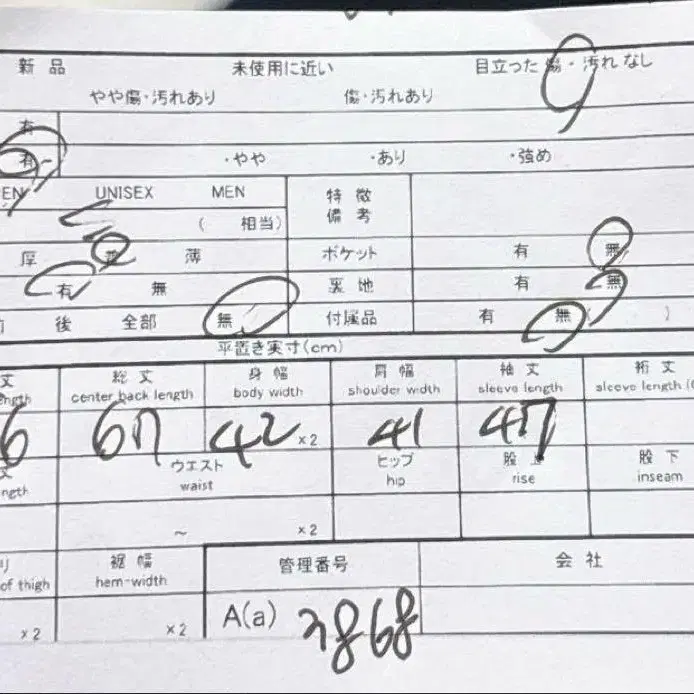 新品 未使用に近い 目立った傷・汚れなし
やや傷・汚れあり 傷・汚れあり
有
有 ・やや ・あり ・強め
EN UNISEX MEN 特徴
備考
( 相当)
厚 普 薄 ポケット 有 無
有 無 裏地 有 無
前 後 全部 無 付属品 有 無 ( )
平置き実寸(cm)
丈 総丈 身幅 肩幅 袖丈 裄丈
ength center back length body width shoulder width sleeve length sleeve length (
6 67 42 ×2 41 47
丈 ウエスト ヒップ 股上 股下
ngth waist hip rise inseam
~ ×2
裾幅 管理番号 会社
of thigh hem-width
×2 ×2 A(a) 3868